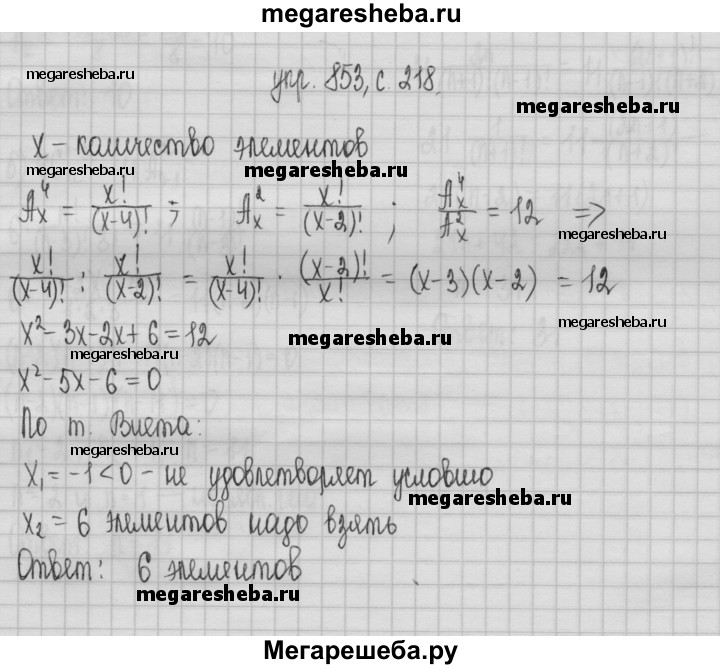 megaresheba.ru
megaresheba.ru
упр. 853, с. 218.
megaresheba.ru
x – количество элементов
megaresheba.ru
megaresheba.ru
A_x^4 = x!/(x-4)! ; A_x^2 = x!/(x-2)! ; A_x^4/A_x^2 = 12 ⇒
megaresheba.ru
x!/(x-4)! : x!/(x-2)! = x!/(x-4)! · (x-2)!/x! = (x-3)(x-2) = 12
x² - 3x - 2x + 6 = 12
megaresheba.ru
megaresheba.ru
megaresheba.ru
x² - 5x - 6 = 0
По т. Виета:
megaresheba.ru
x₁ = -1 < 0 – не удовлетворяет условию
megaresheba.ru
x₂ = 6 элементов надо взять
Ответ: 6 элементов
megaresheba.ru
Мегарешеба.ру